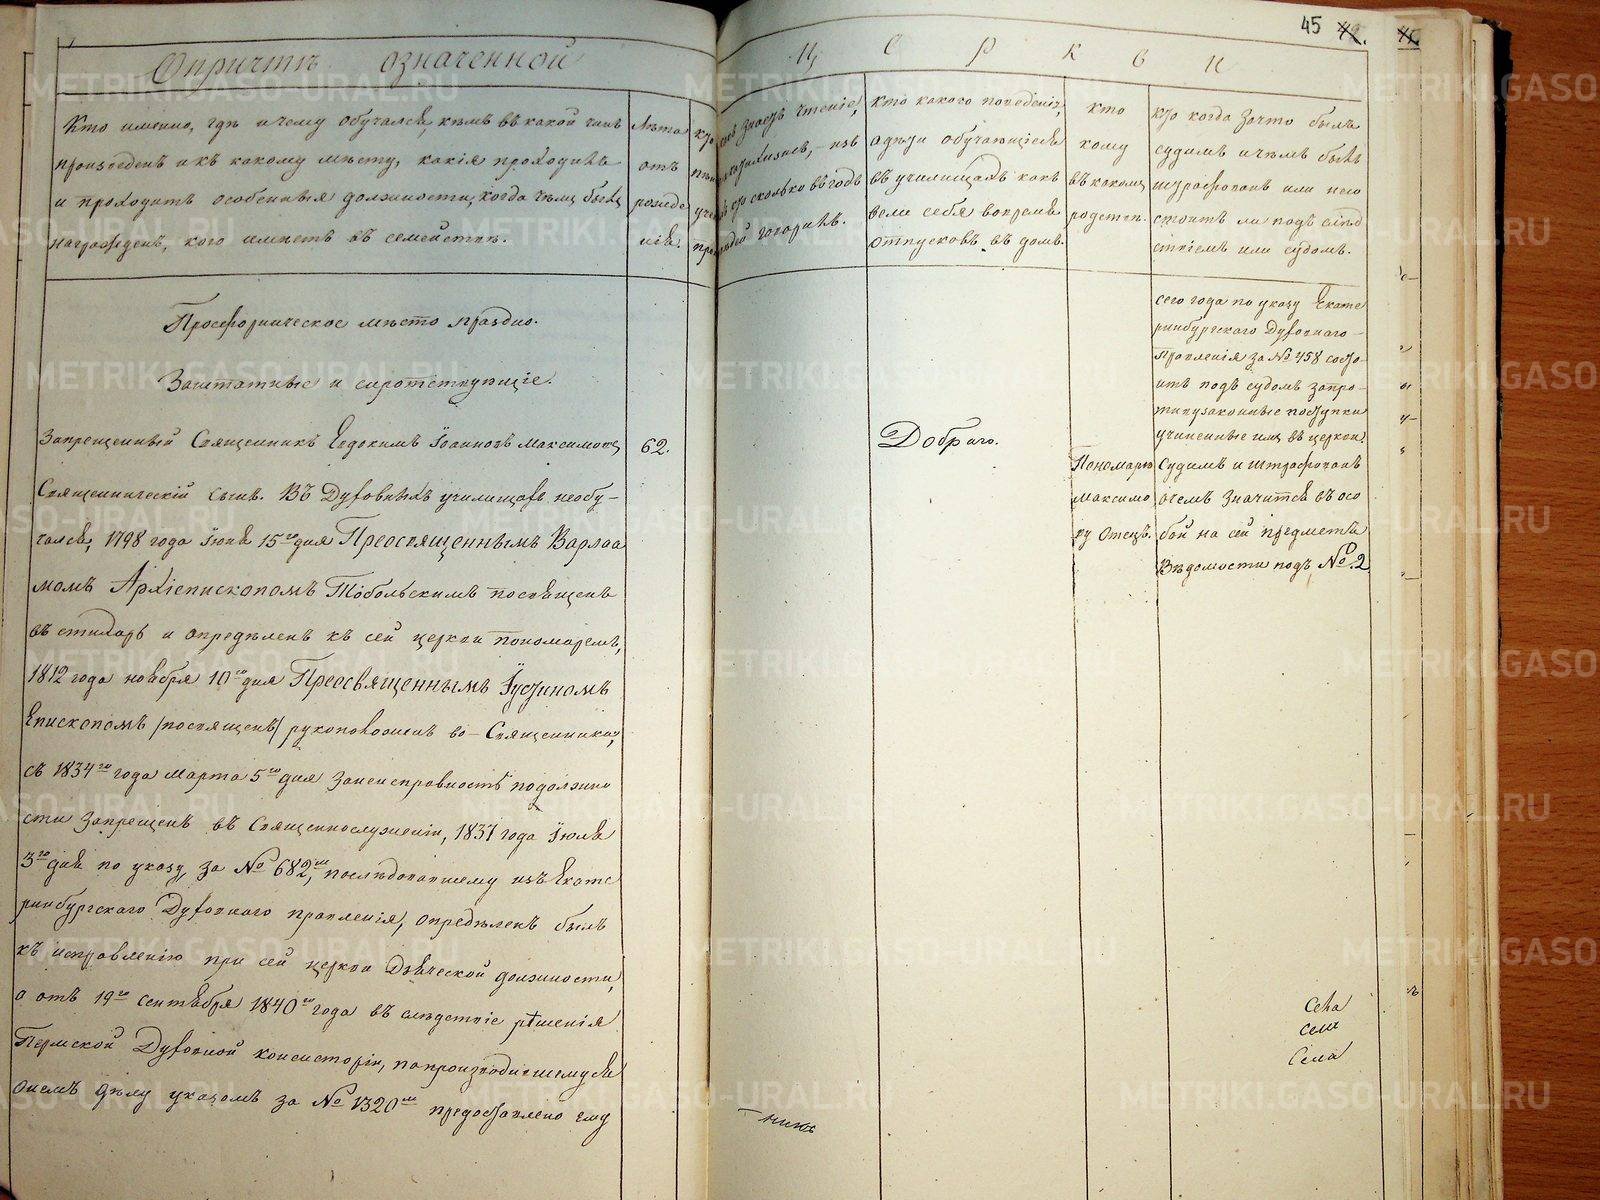 45 42.
О причтѣ означенной
Кто имянно, гдѣ и чему обучался, кѣмъ въ какой чинъ
произведенъ и къ какому мѣсту, какія проходилъ
и проходитъ особенныя должности, когда чѣмъ былъ
награжденъ, кого имѣетъ въ семействѣ.
Лѣта
отъ
рожде
нія.
Просфорническое мѣсто праздно.
Заштатные и сиротствующіе.
Запрещенный Священникъ Евдокимъ Іоанновъ Максимовъ
62.
Священническій сынъ. Въ Духовныхъ училищахъ необу-
чался, 1798 года Іюня 15го дня Преосвященнымъ Варлаа
момъ Архіепископомъ Тобольскимъ посвященъ
въ стихарь и опредѣленъ къ сей церкви пономаремъ,
1812 года ноября 10го дня Преосвященнымъ Іустиномъ
Епископомъ /посвященъ/ рукоположенъ во Священника,
съ 1834го года марта 5го дня занеисправность подолжно
сти запрещенъ въ Священнослуженіи, 1837 года Іюля
3го дня по указу, за № 682м, послѣдовавшему изъ Екате
ринбургскаго Духовнаго правленія, опредѣленъ былъ
къ исправленію при сей церкви Дьяческой должности,
а отъ 19го сентября 1840го года въ слѣдствіе рѣшенія
Пермской Духовной консисторіи, попроизводившемуся
онемъ дѣлу указомъ за № 1320м предоставлено ему
Ц е р к в и
знаетъ чтеніе,
катихизисъ, изъ
сколько въ годъ
говорилъ.
Кто какого поведенія,
а дѣти обучающіеся
въ училищахъ какъ
вели себя вовремя
отпусковъ въ домъ.
кто
кому
въ какомъ
родствѣ.
кто когда зачто былъ
судимъ и чѣмъ былъ
штрафованъ или не со
стоитъ ли подъ слѣд
ствіемъ или судомъ.
сего года по указу Екате
ринбургскаго Духовнаго
Правленія за № 758 состо-
итъ подъ судомъ запро-
тивузаконные поступки
учиненные имъ въ церкви.
Добраго.
Пономарю
Максимо
ву Отецъ.
Судимъ и штрафованъ
очемъ значится въ осо
бой на сей предметъ
Вѣдомости подъ № 2
Села
Села